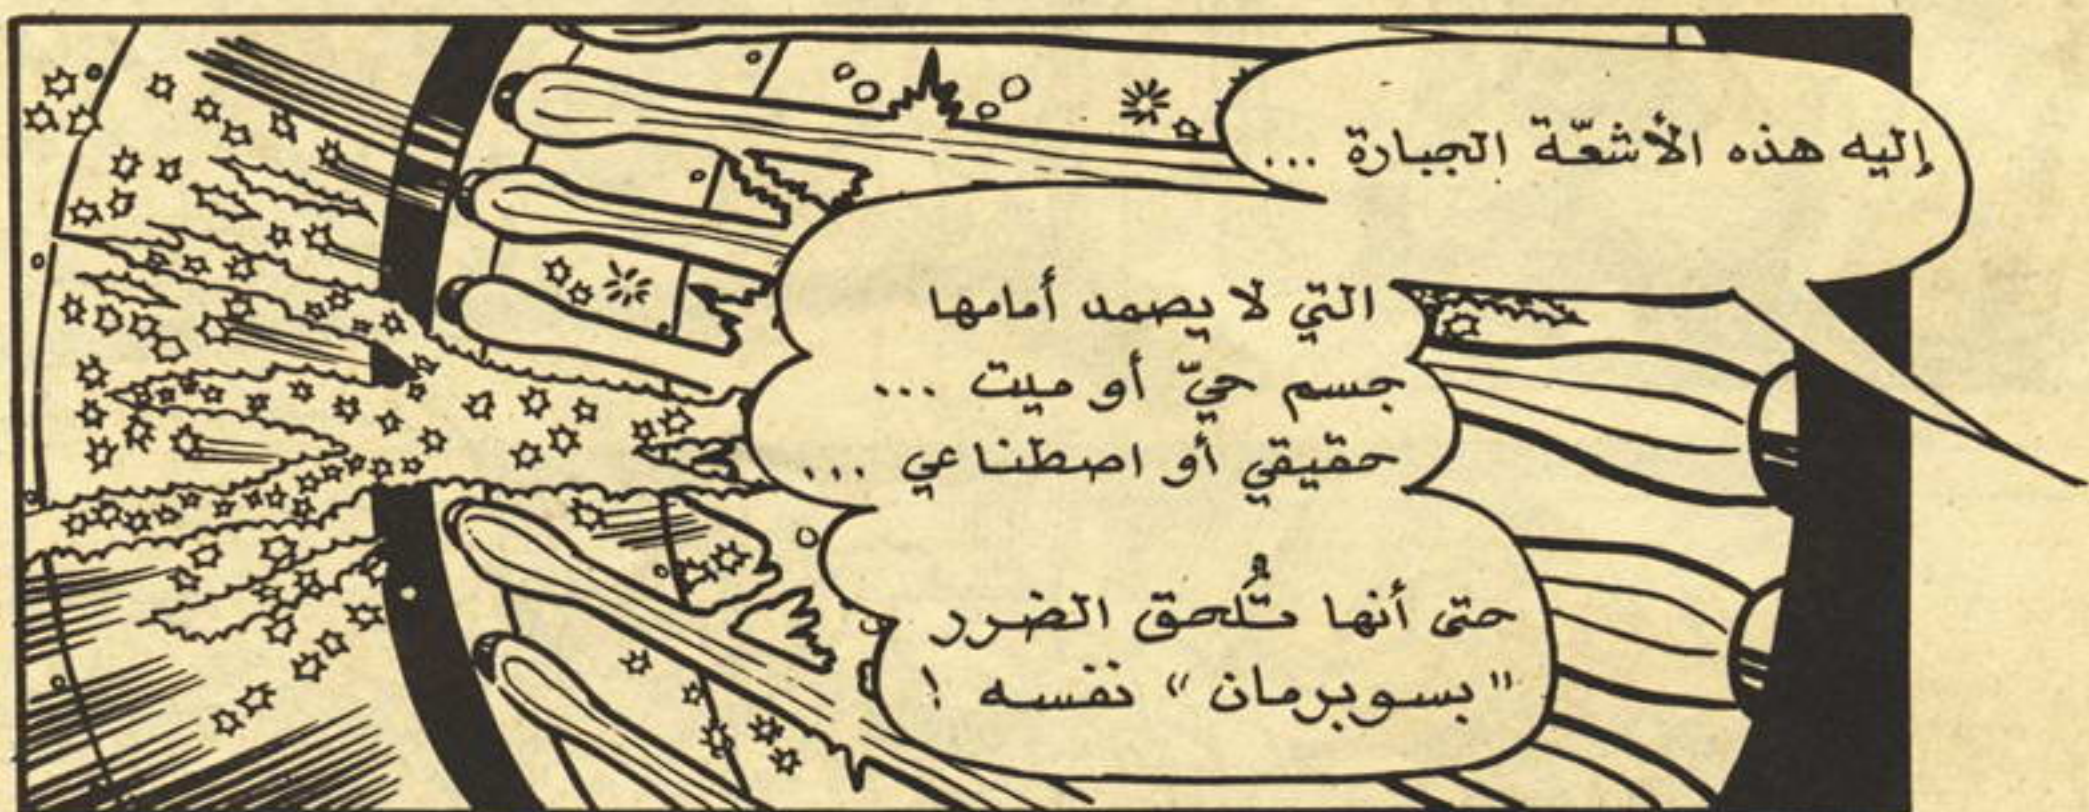 إليه هذه الأشعّة الجبارة ...
التي لا يصمد أمامها
جسم حيّ أو ميت ...
حقيقي أو اصطناعي ...
حتى أنها تُلحق الضرر
"بسوبرمان" نفسه !